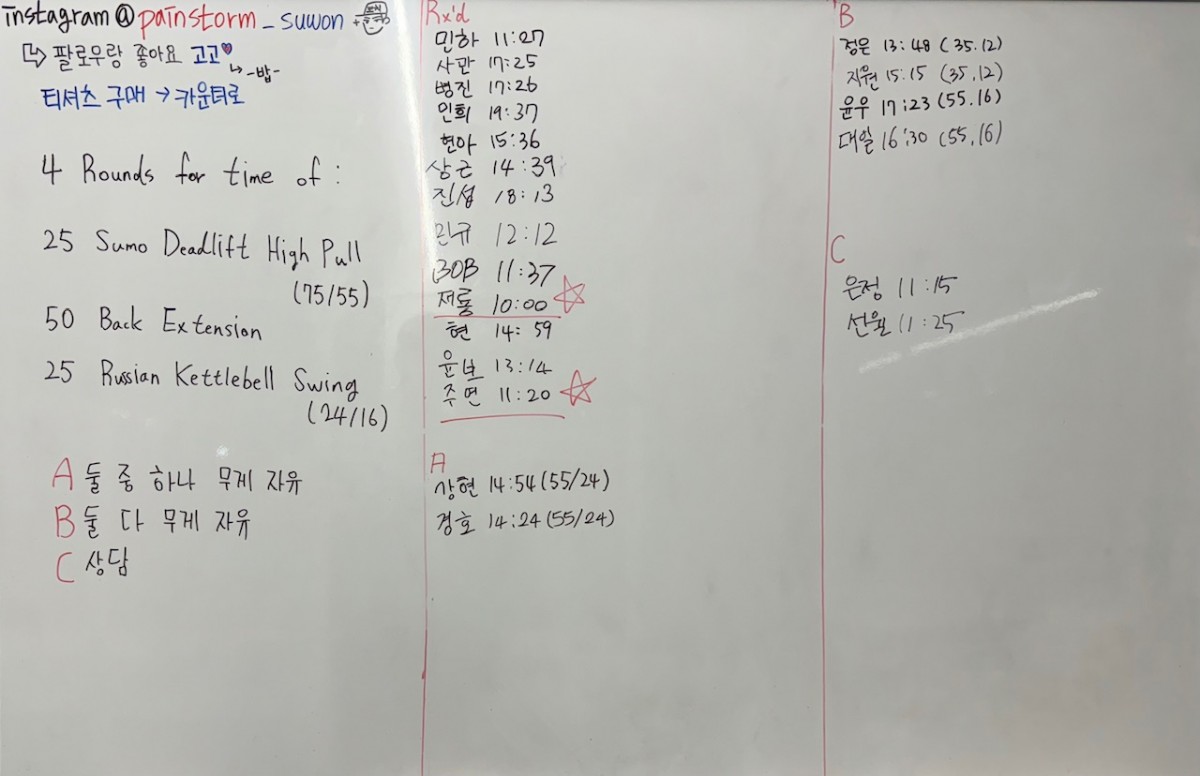 instagram @painstorm_suwon
↳ 팔로우랑 좋아요 고고♥
↳ -밥-
티셔츠 구매 → 카운터로
4 Rounds for time of :
25 Sumo Deadlift High Pull
(75/55)
50 Back Extension
25 Russian Kettlebell Swing
(24/16)
A 둘 중 하나 무게 자유
B 둘 다 무게 자유
C 상담
Rx'd
민하 11:27
사관 17:25
병진 17:26
인희 19:37
현아 15:36
상근 14:39
진섭 18:13
민규 12:12
BOB 11:37
재롱 10:00 ☆
현 14:59
윤브 13:14
주연 11:20 ☆
A
상현 14:54 (55/24)
경호 14:24 (55/24)
B
정은 13:48 (35.12)
지원 15:15 (35.12)
윤우 17:23 (55.16)
대일 16:30 (55.16)
C
은정 11:15
선월 11:25